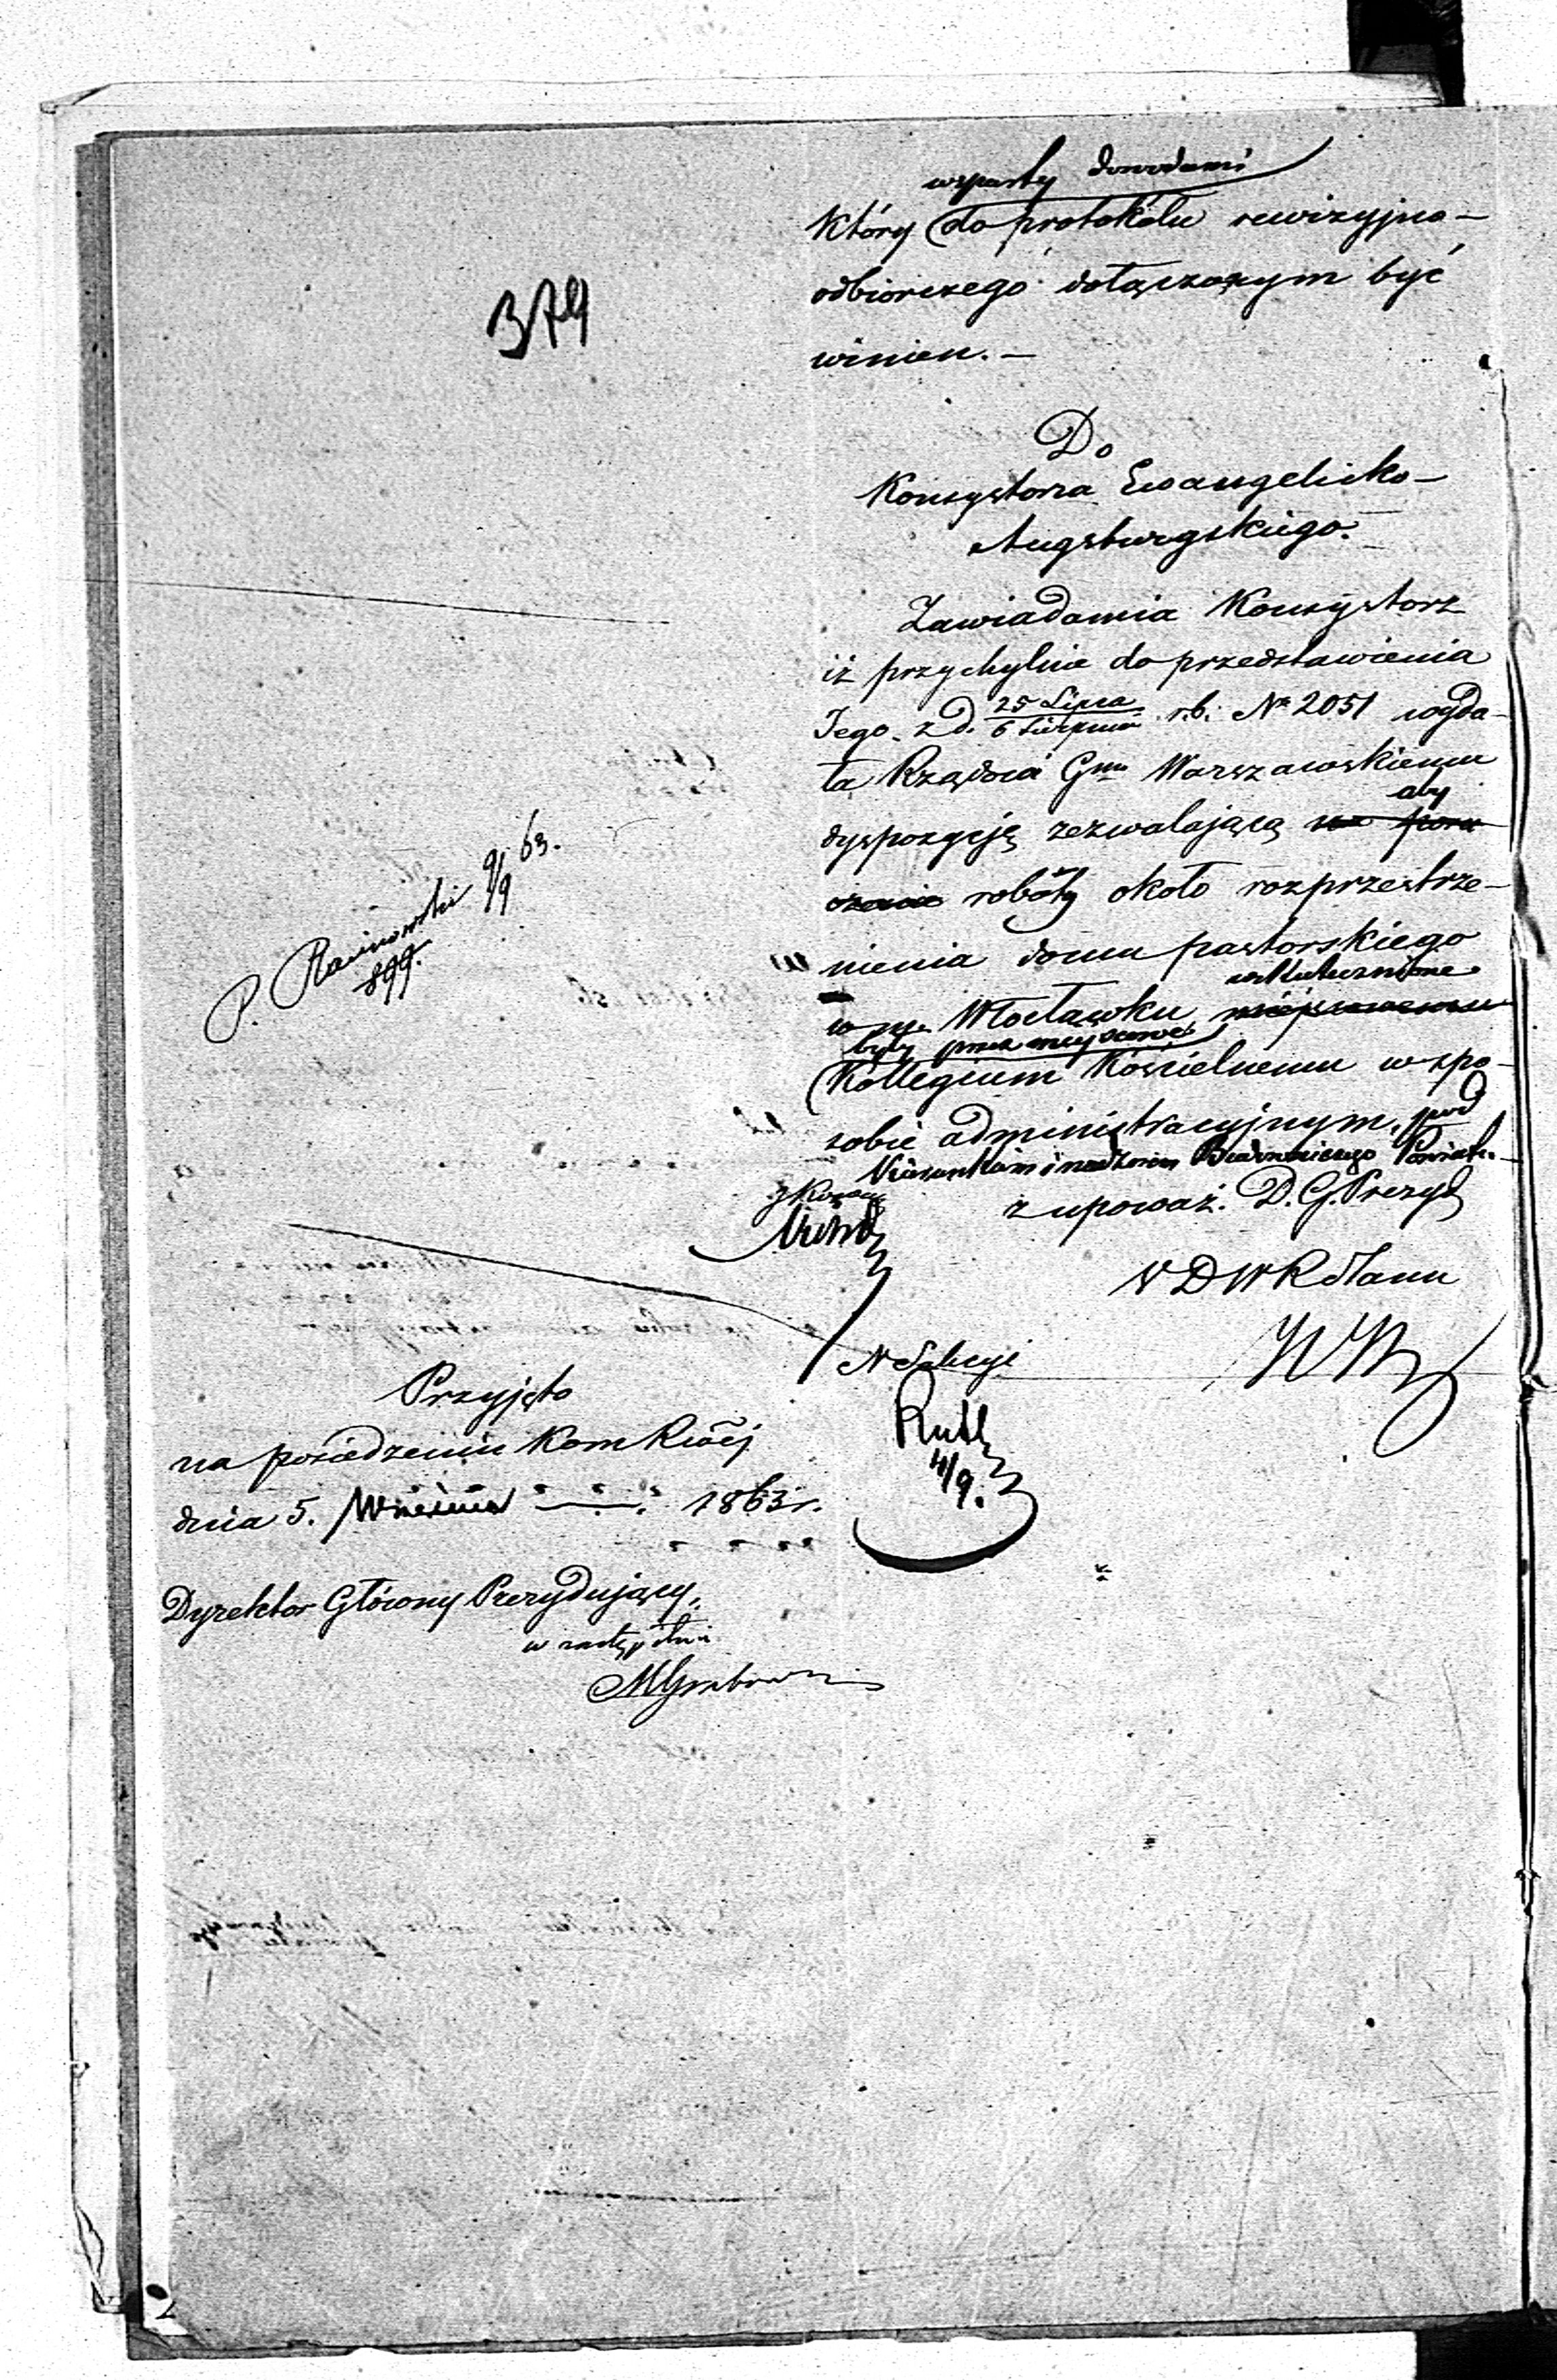 374
wsparty dowodami
który do protokółu rewizyjno-
odbiorczego dołączonym być
winien. —
Do
Konsystorza Ewangelicko-
Augsburgskiego.
Zawiadamia Konsystorz
iż przychylnie do przedstawienia
Jego z d. 25 Lipca / 6 Sierpnia r.b. No 2051 wyda-
ła Rządowi Gnu Warszawskiemu
aby
dyspozycję zezwalającą na poru
czenie roboty około rozprzestrze-
nienia domu pastorskiego
uskutecznione
w m. Włocławku miejscowemu
były przez miejscowe
Kollegium Kościelnemu w spo-
sobie administracyjnym, pod
kierunkiem i nadzorem Budowniczego Powiatu.
z upoważ. D. G. Prezyd
V D W R Stanu
N Sekcyi
4/9.
P. 9/9 63.
899.
Przyjęto
na posiedzeniu Kom Rząd
dnia 5. Września 1863 r.
Dyrektor Główny Prezydujący,
w zastępstwie